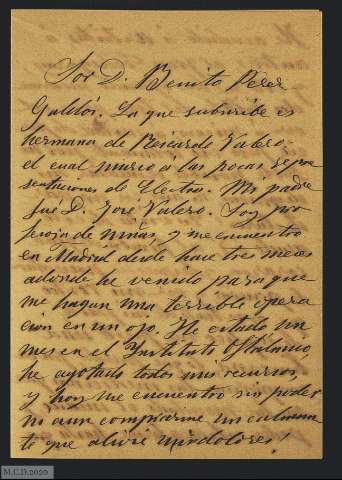 Sor D. Benito Pérez
Galdós. La que subscribe es
hermana de Ricardo Valero.
el cual murió á las pocas repre
sentaciones de Electra. Mi padre
fué D. José Valero. Soy pro
fesora de niñas y me encuentro
en Madrid desde hace tres meses
adonde he venido para que
me hagan una terrible opera
cion en un ojo. He estado un
mes en el Instituto Oftálmico
he agotado todos mis recursos,
y hoy me encuentro sin poder
ni aun comprarme un calman
te que alivie mis dolores!
M.C.D. 2020